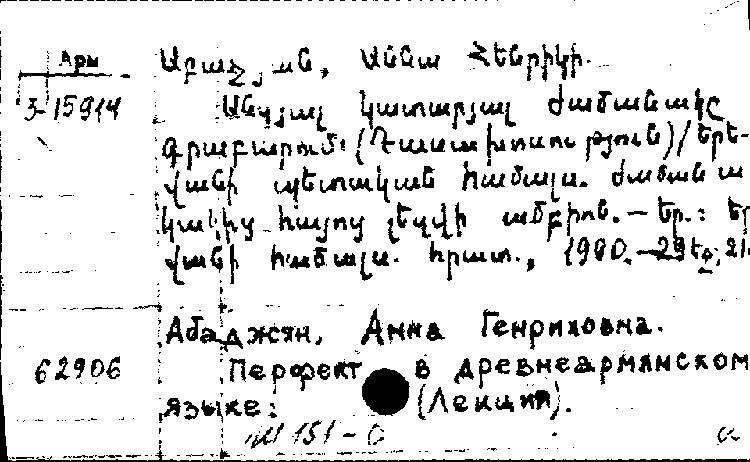 Арм
Աբաջյան, Աննա Հենրիկի.
3-15914
Անցյալ կատարյալ ժամանակը
գրաբարում: (Դասախոսություն)/Երե-
վանի պետական համալս. Ժամանա
կակից հայոց լեզվի ամբիոն. – Եր.: Ер
վանի համալս. հրատ., 1980. – 29 էջ, 21.
Абаджян, Анна Генриховна.
62906
Перфект в древнеармянском
языке:
(Лекция).
151-0